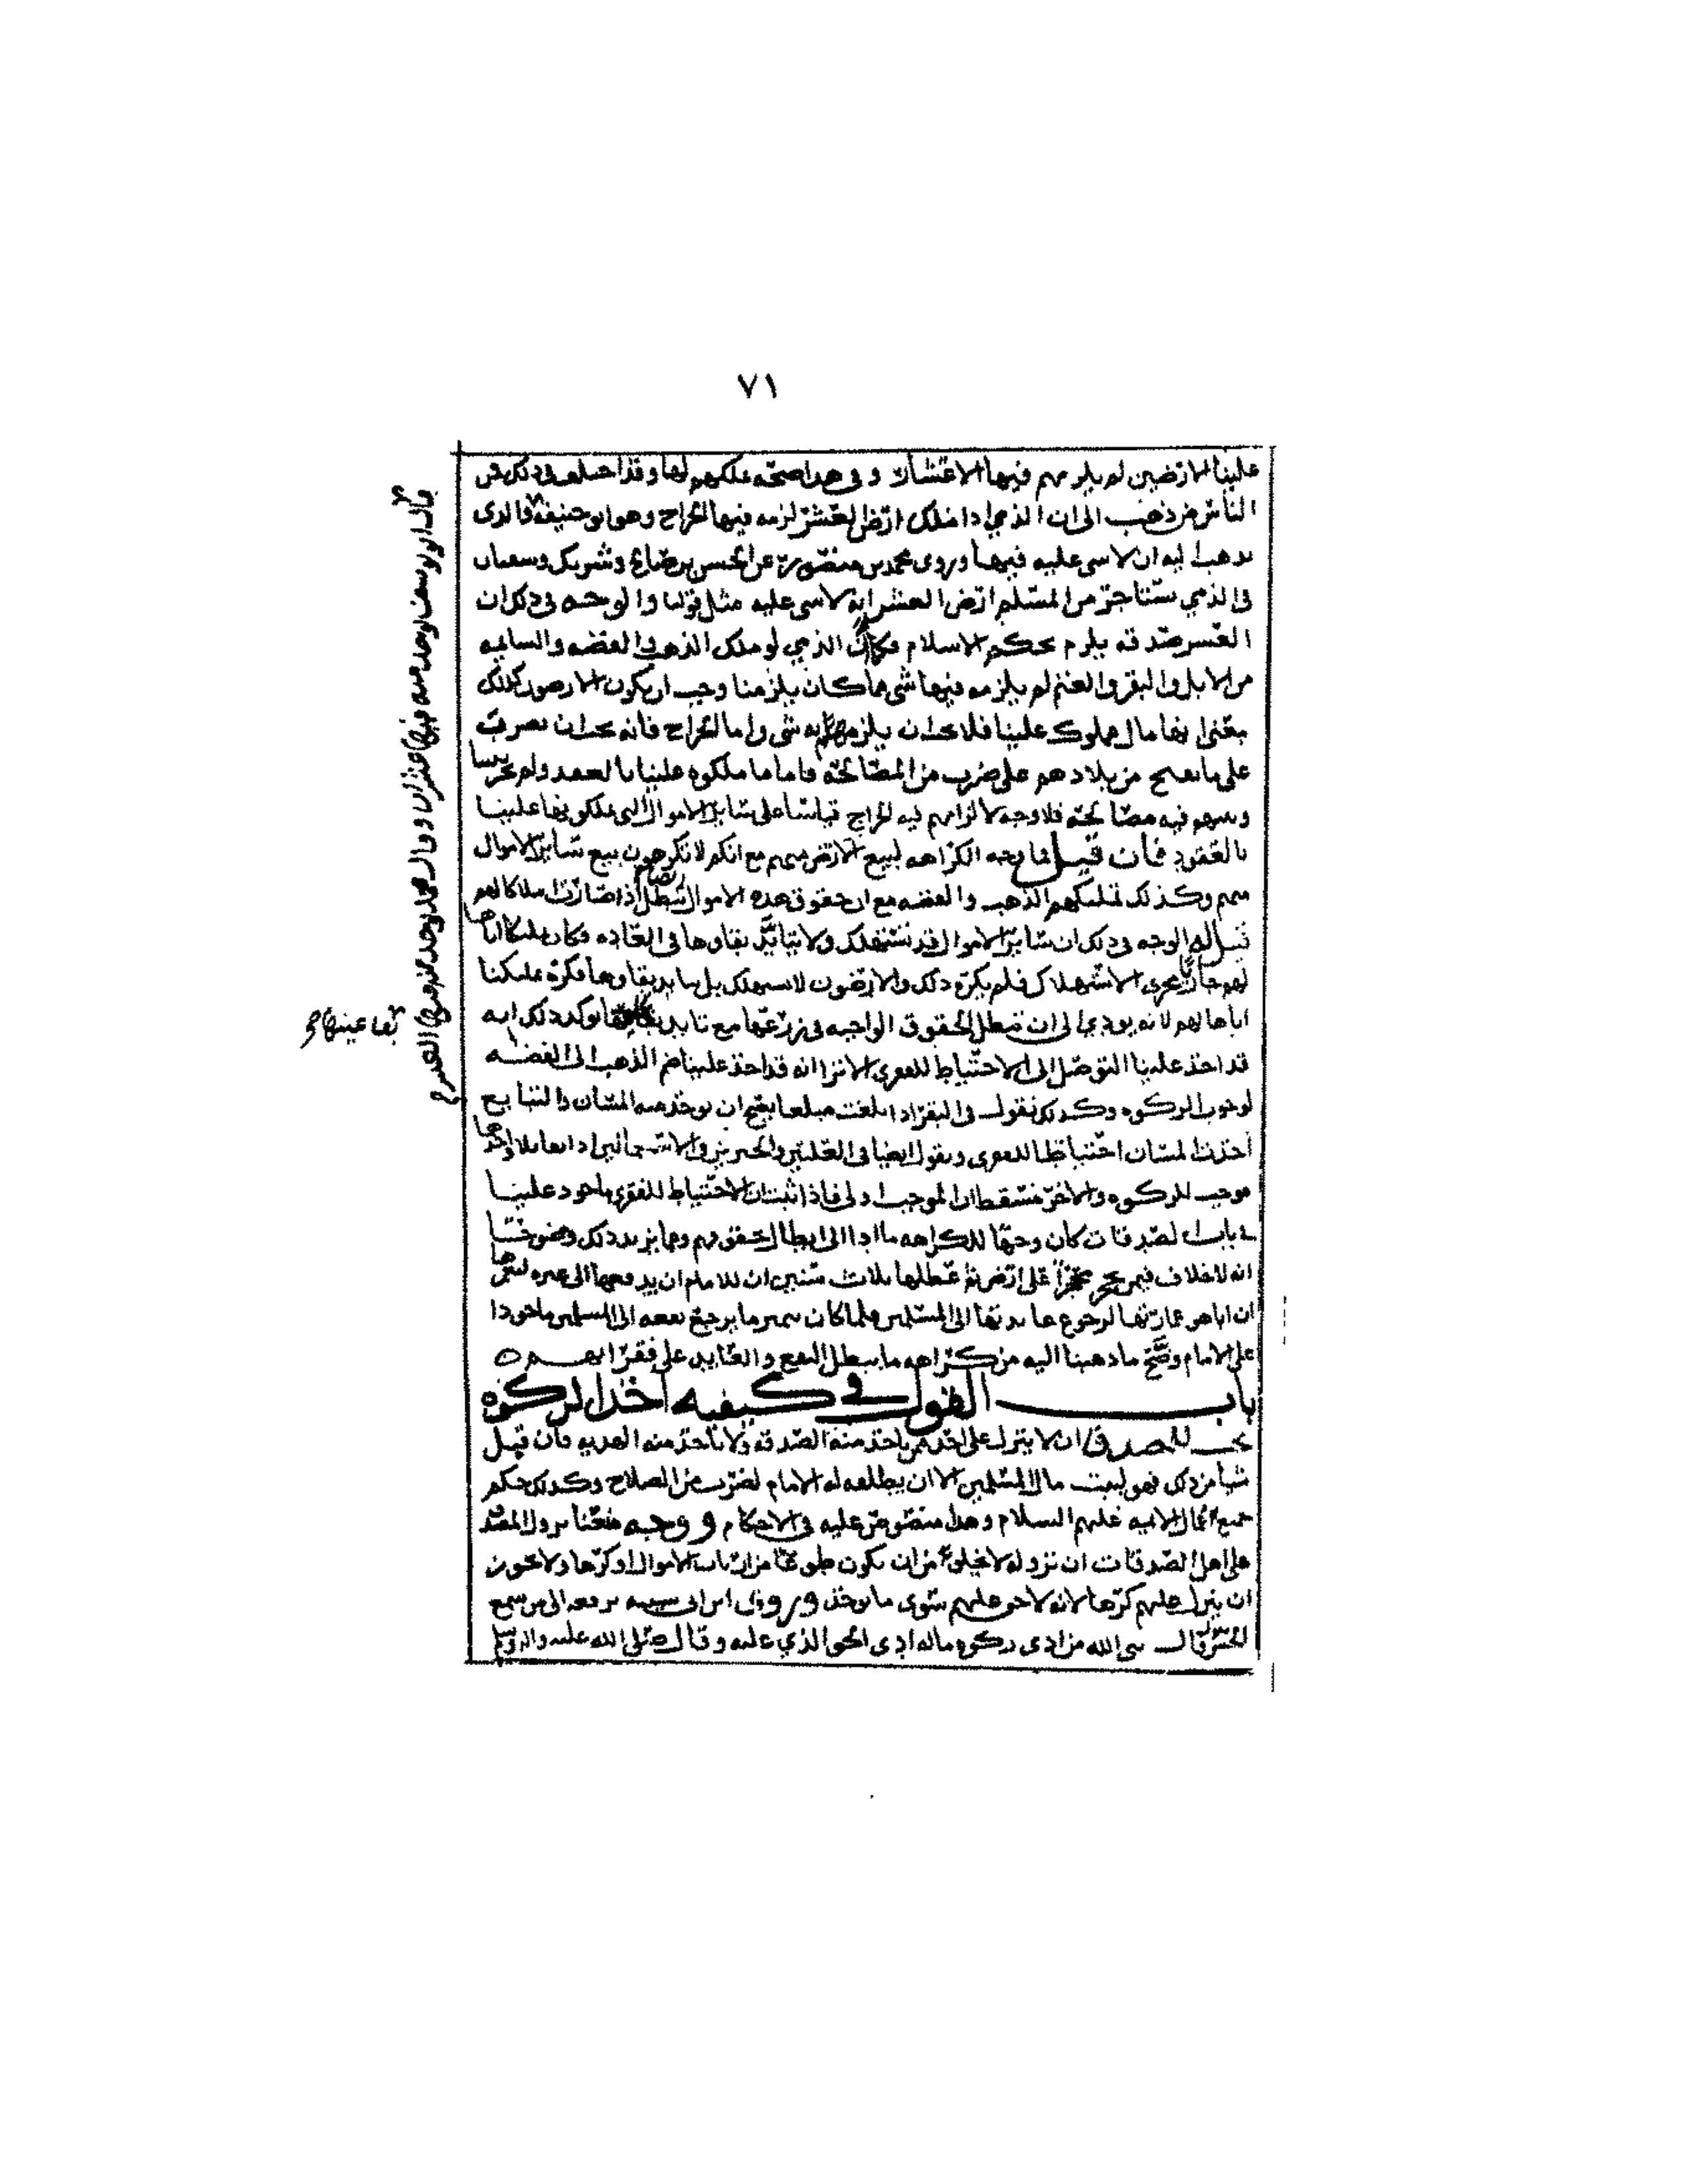 ٧١
علينا الارضين لم يلزمهم فيها الاعشار وفي هذا صحة ملكهم لها وقد اختلف في ذلك فمن
الناس من ذهب الى ان الذمي اذا ملك ارض العشر لزمه فيها الخراج وهو ابو حنيفة والذي
يذهب اليه ان لا شي عليه فيها وروى محمد بن منصور عن الحسن بن صالح وشريك وسفيان
في الذمي يستاجر من المسلم ارض العشر انه لا شي عليه مثل قولنا والوجه في ذلك ان
العشر صدقه يلزم بحكم الاسلام وكان الذمي لو ملك الذهب والفضه والسايمه
من الابل والبقر والغنم لم يلزمه فيها شي مما كان يلزمنا وجب ان يكون الارضون كذلك
بمعنى انها مال مملوك علينا فلا يجب ان يلزمهم شي واما الخراج فانه يجب ان يضرب
على ما من بلادهم على ضرب من المصالحة فاما ما ملكوه علينا بالعقد ولم يجر بيننا
وبينهم فيه مصالحة فلا وجه لالزامهم فيه الخراج قياسا على ساير الاموال التي يملكونها علينا
بالعقود فان قيل فما وجه الكراهه لبيع الارض منهم مع انكم لا تكرهون بيع ساير الاموال
منهم وكذلك تمليكهم الذهب والفضه مع ان حقوق هذه الاموال تبطل اذا صارت املاكا لهم
قيل له الوجه في ذلك ان ساير الاموال قد تستهلك ولا يتابد بقاوها في العاده وكان تمليكنا اياها
لهم جاريا مجرى الاستهلاك فلم يكره ذلك والارضون لا تستهلك بل يتابد بقاوها فكره تمليكنا
اياها لهم لانه يودي الى ان تبطل الحقوق الواجبه في زرعها مع تابد يوكد ذلك انه
قد اخذ علينا التوصل الى الاحتياط للفقرى الا ترا انه قد اخذ علينا ضم الذهب الى الفضه
لوجوب الزكوه وكذلك نقول في البقر اذا بلغت مبلغا يصح ان يوخذ منه المسان والتبايع
اخذت المسان احتياطا للفقرى ونقول ايضا في اذا احدهما
موجب للزكوه والاخر مسقط ان الموجب اولى فاذا ثبت ان الاحتياط للفقرى ماخوذ علينا
في باب الصدقات كان وجها للكراهه ما ادا الى ابطال حقوقهم ومما يزيد ذلك وضوحا
انه لا خلاف فيمن تحجر محجرا على ارض ثم عطلها ثلاث سنين ان للامام ان يدفعها الى غيره ليعمرها
ان اباها هو عمارتها لرجوع عايدتها الى المسلمين فلما كان ما يرجع نفعه الى المسلمين ماخوذا
على الامام وضح ما ذهبنا اليه من كراهه ما يبطل النفع والعايد على فقرايهم ه
باب القول في كيفيه اخذ الزكوه
يجب للمصدق ان لا ينزل على احد ممن ياخذ منه الصدقه ولا ياخذ منه الهديه فان قبل
شيا من ذلك فهو لبيت مال المسلمين الا ان يطلقه له الامام لضرب من الصلاح وكذلك حكم
جميع عمال الايمه عليهم السلام وهذا منصوص عليه في الاحكام ووجه منعنا نزول المصدق
على اهل الصدقات ان نزوله لا يخلو من ان يكون طوعا من ارباب الاموال او كرها ولا يجوز
ان ينزل عليهم كرها لانه لا حق عليهم سوى ما يوخذ وروى ابن ابي شيبه يرفعه الى من سمع
الحسن قال نبي الله من ادى زكوه ماله ادى الحق الذي عليه وقال صلى الله عليه واله وسلم
قال ابو يوسف يوخذ منه فيها عشران وقال محمد يوخذ منه فيها العشر
بقا عينها